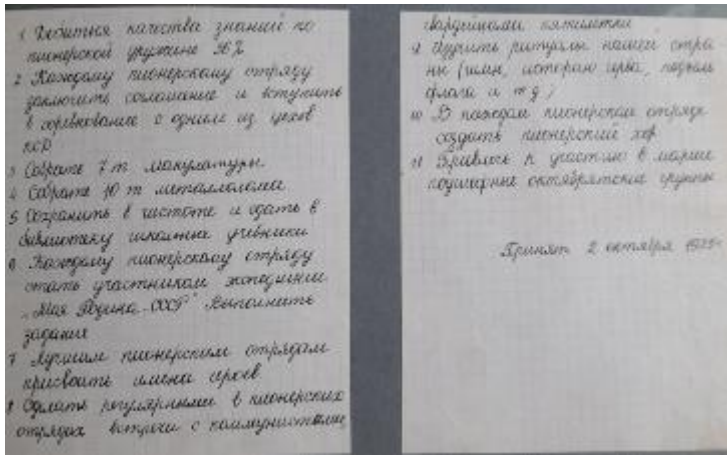 1 Добиться качества знаний по
пионерской дружине 36%
2 Каждому пионерскому отряду
заключить соглашение и вступить
в соревнование с одним из цехов
3 Собрать 7 т макулатуры
4 Собрать 10 т металлолома
5 Сохранить в чистоте и сдать в
библиотеку школьные учебники
6 Каждому пионерскому отряду
стать участником экспедиции
„Моя Родина - СССР" Выполнить
задания
7 Лучшим пионерским отрядам
присвоить имена героев
8 Сделать регулярными в пионерских
отрядах встречи с коммунистами
гвардейцами пятилетки
9 Изучить ритуалы нашей стра-
ны (гимн, историю герба, подъем
флага и т д)
10 В каждом пионерском отряде
создать пионерский хор
11 Привлечь к участию в марше
подшефные октябрятские группы
Принят 2 октября